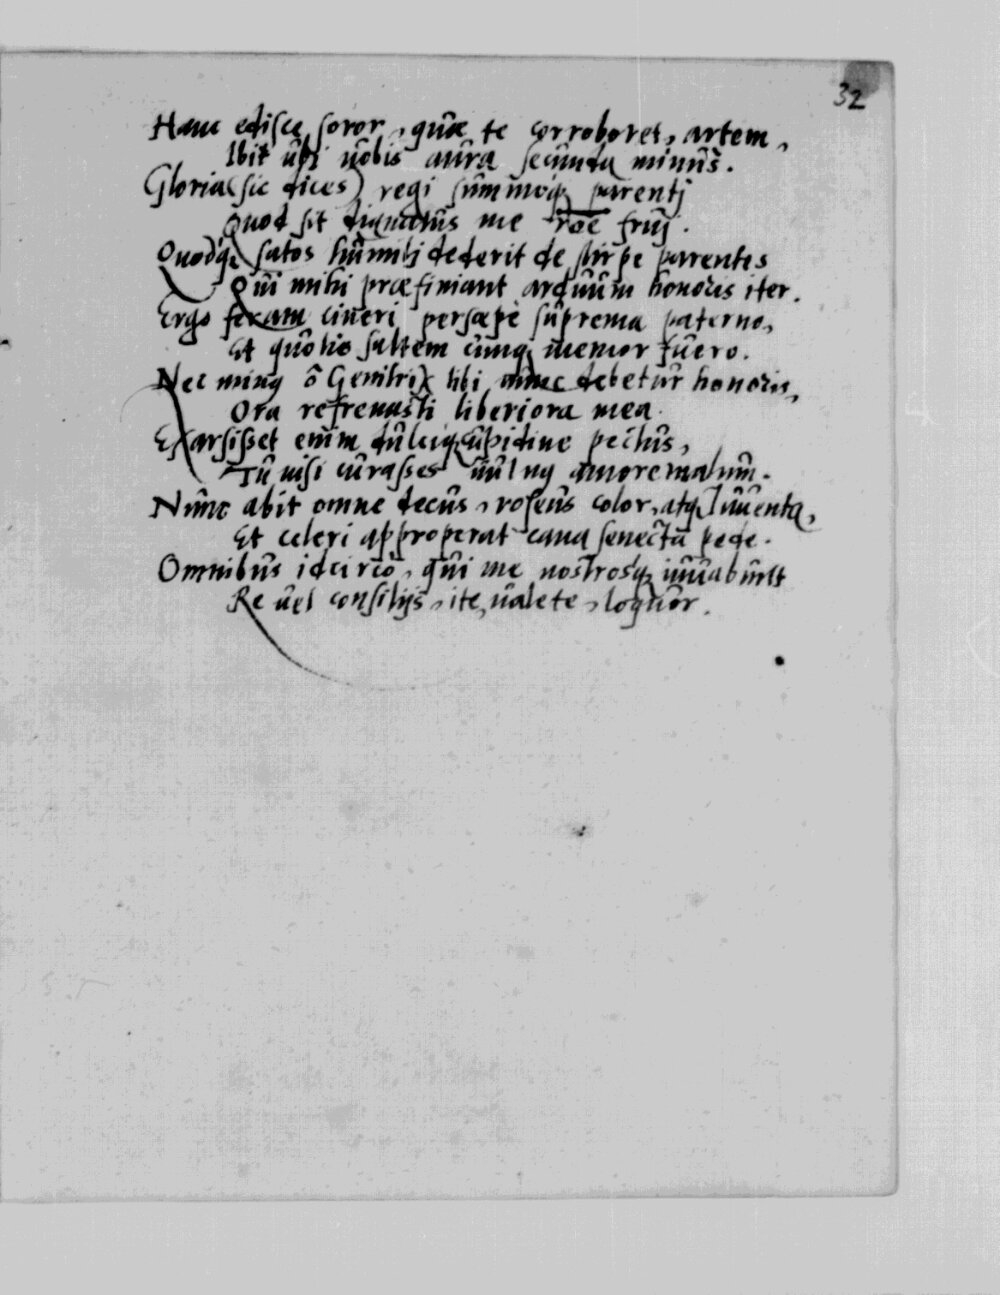 32
Hanc edisce soror, quæ te corroboret, artem,
Ibit ubi vobis aura secunda minus.
Gloria (sic dices) regi summoq; parenti
Quod sit dignatus me frui.
Quodq; satos humili dederit de stirpe parentes
Qui mihi præfiniant arduum honoris iter.
Ergo feram cineri persæpè suprema paterno,
Et quoties saltem cunq; memor fuero.
Nec minus ô Genitrix tibi nunc debetur honoris,
Ora refrenasti liberiora mea.
Exarsisset enim dulciq; cupidine pectus,
Tu nisi curasses vulnus amore malum.
Nunc abit omne decus, roseus color, atq; Iuventa,
Et celeri approperat cana senecta pede.
Omnibus idcircò, qui me nostrosq; iuvabunt
Re vel consilijs, ite, valete, loquor.